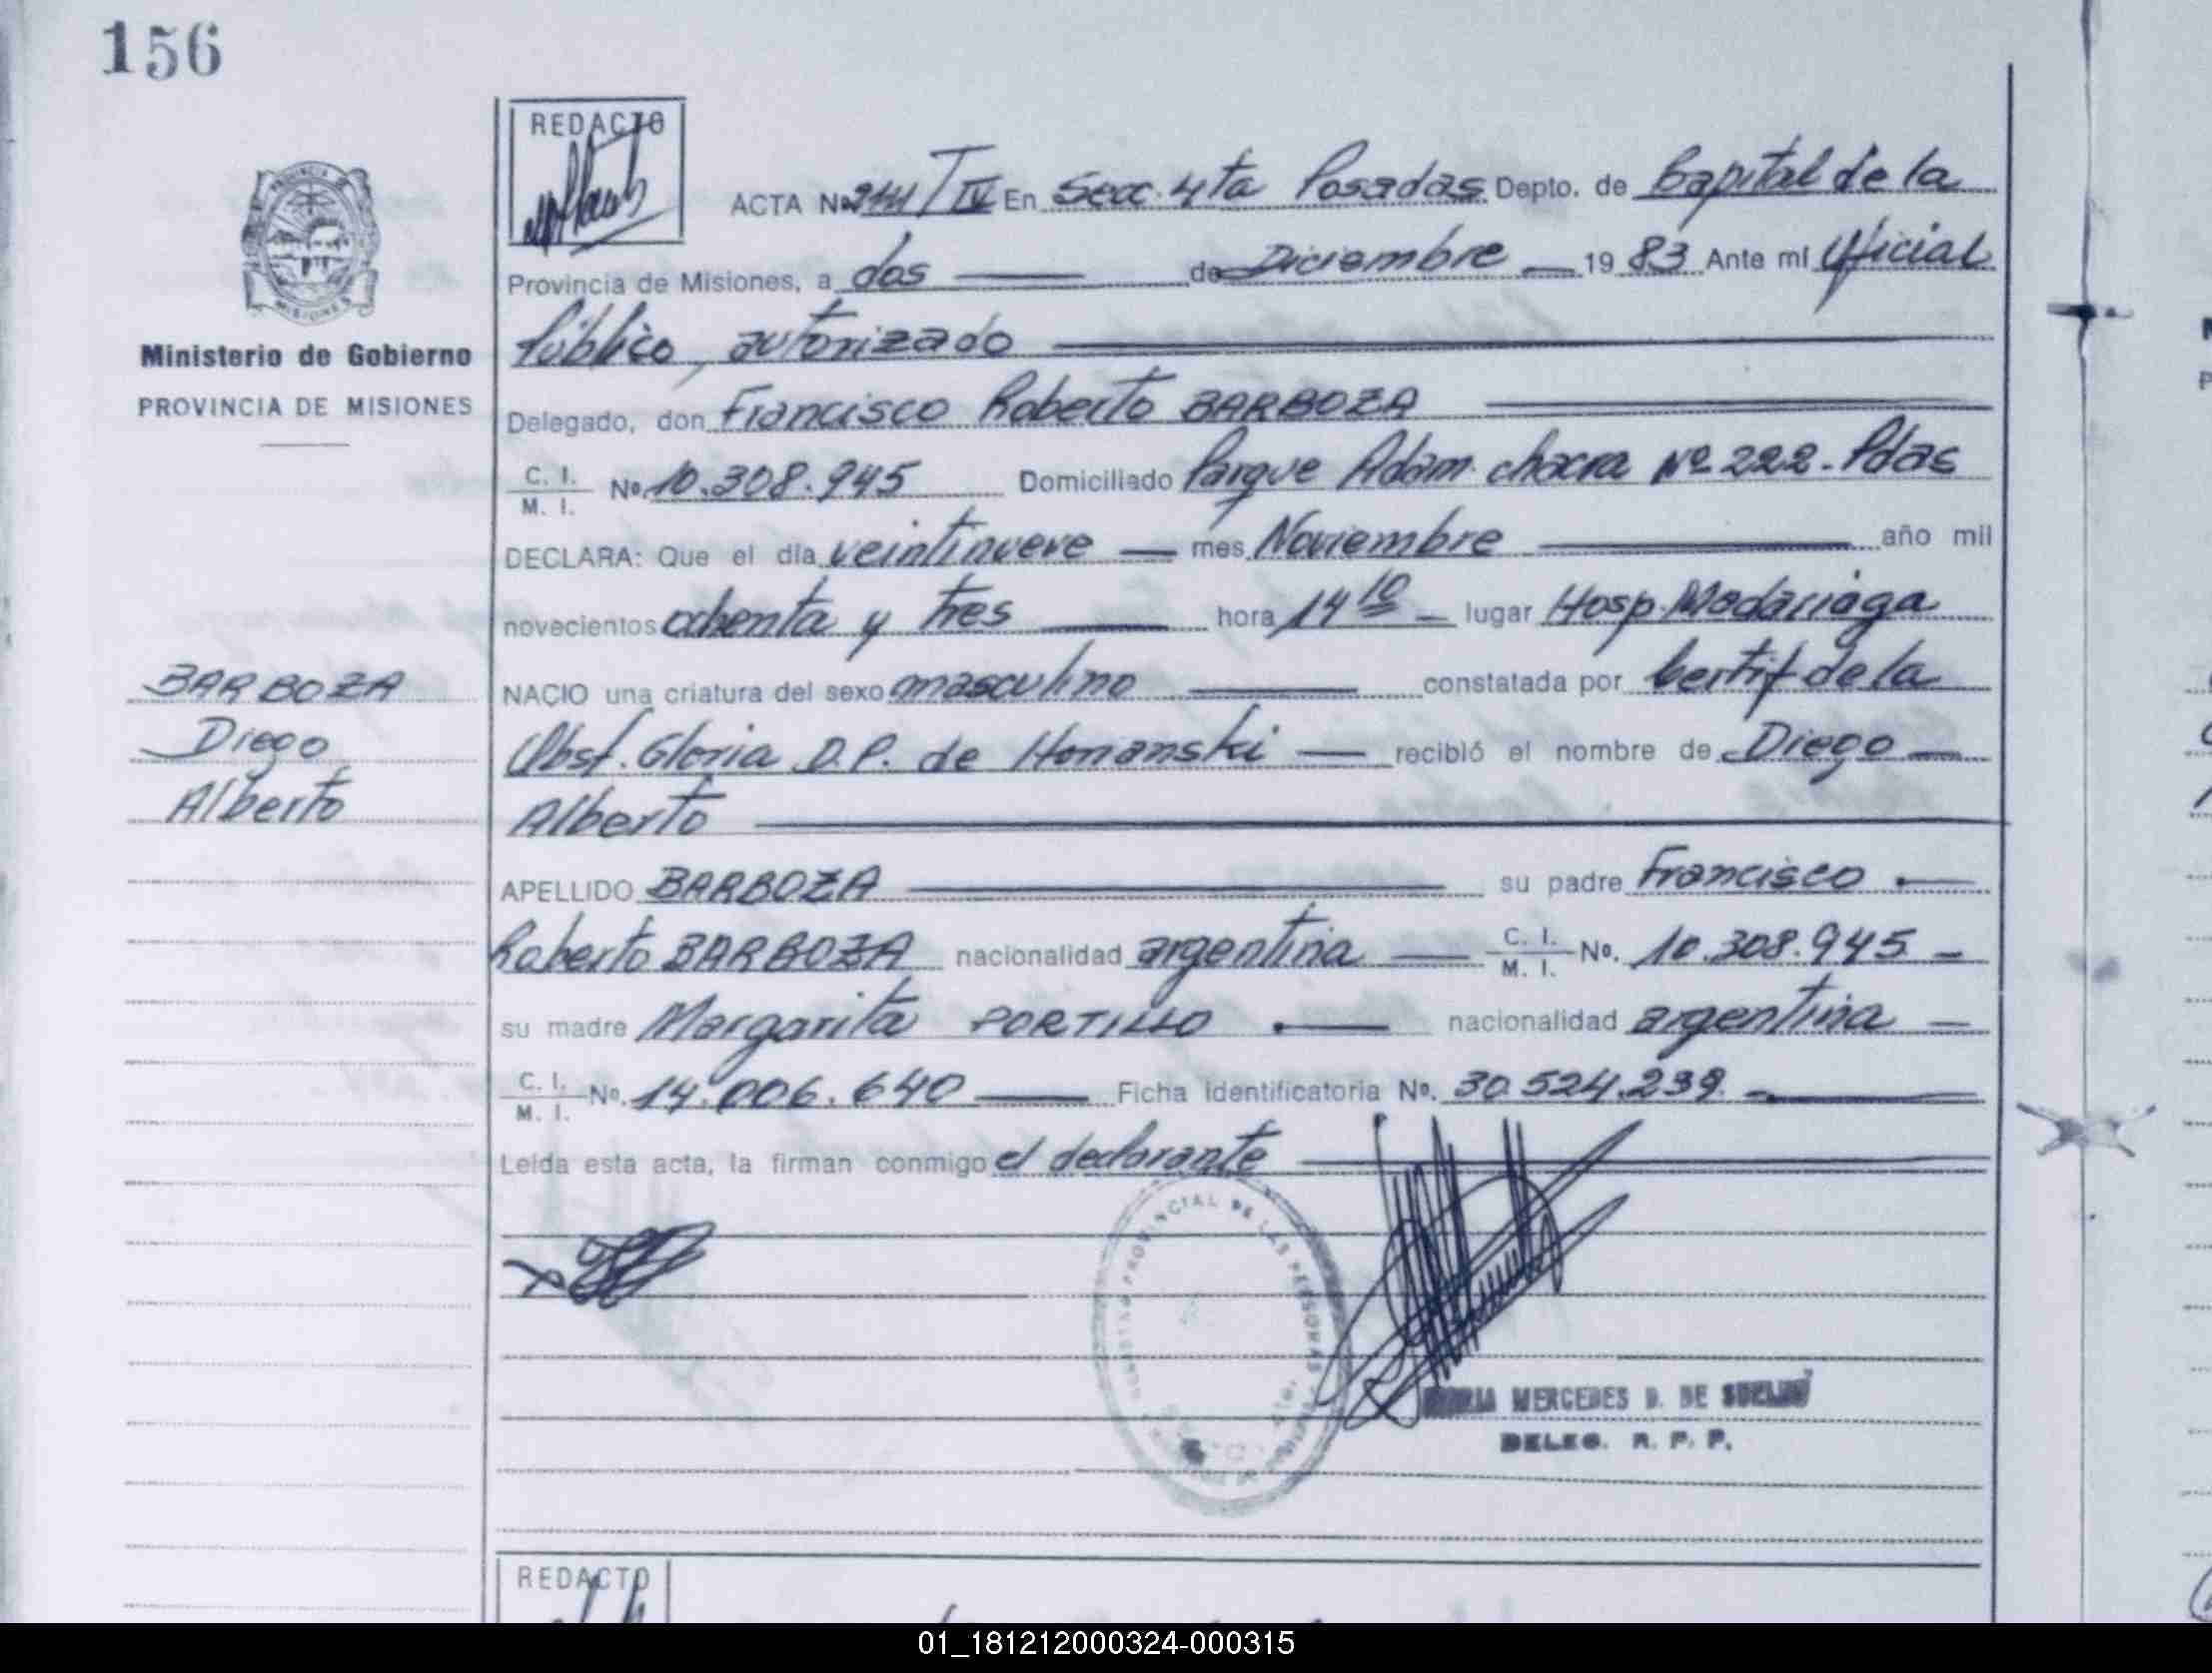 156
REDACTO
ACTA Nº /IV En Secc. 4ta Posadas Depto. de Capital de la
Provincia de Misiones, a dos de Diciembre 1983 Ante mí Oficial
Público, autorizado
Ministerio de Gobierno
PROVINCIA DE MISIONES
Delegado, don Francisco Roberto BARBOZA
C. I.
M. I. Nº 10.308.945 Domiciliado Parque Adam. chacra Nº 222. Pdas
DECLARA: Que el día veintinueve mes Noviembre año mil
novecientos ochenta y tres hora 14 10 lugar Hosp. Madariaga
BARBOZA
NACIO una criatura del sexo masculino constatada por Certif de la
Diego
Obst. Gloria D.P. de Honanski recibió el nombre de Diego
Alberto
Alberto
APELLIDO BARBOZA su padre Francisco
Roberto BARBOZA nacionalidad argentina C. I. M. I. Nº. 10.308.945
su madre Margarita PORTILLO nacionalidad argentina
C. I.
M. I. Nº. 14.006.640 Ficha identificatoria Nº. 30.524.239.
Leída esta acta, la firman conmigo el declarante
PROVINCIAL DE LAS PERSONAS
MERCEDES D. DE
DELEG. R. P. P.
REDACTO
01_181212000324-000315